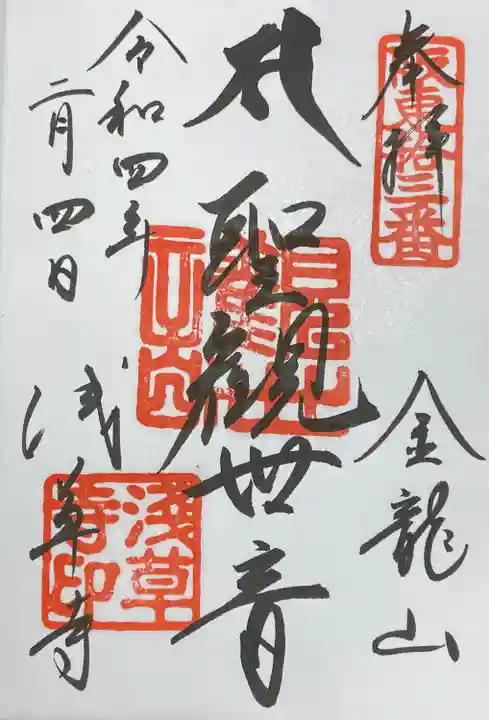 奉拝
坂東拾三番
金龍山
聖観世音
令和四年
二月四日
浅草寺
淺草寺印